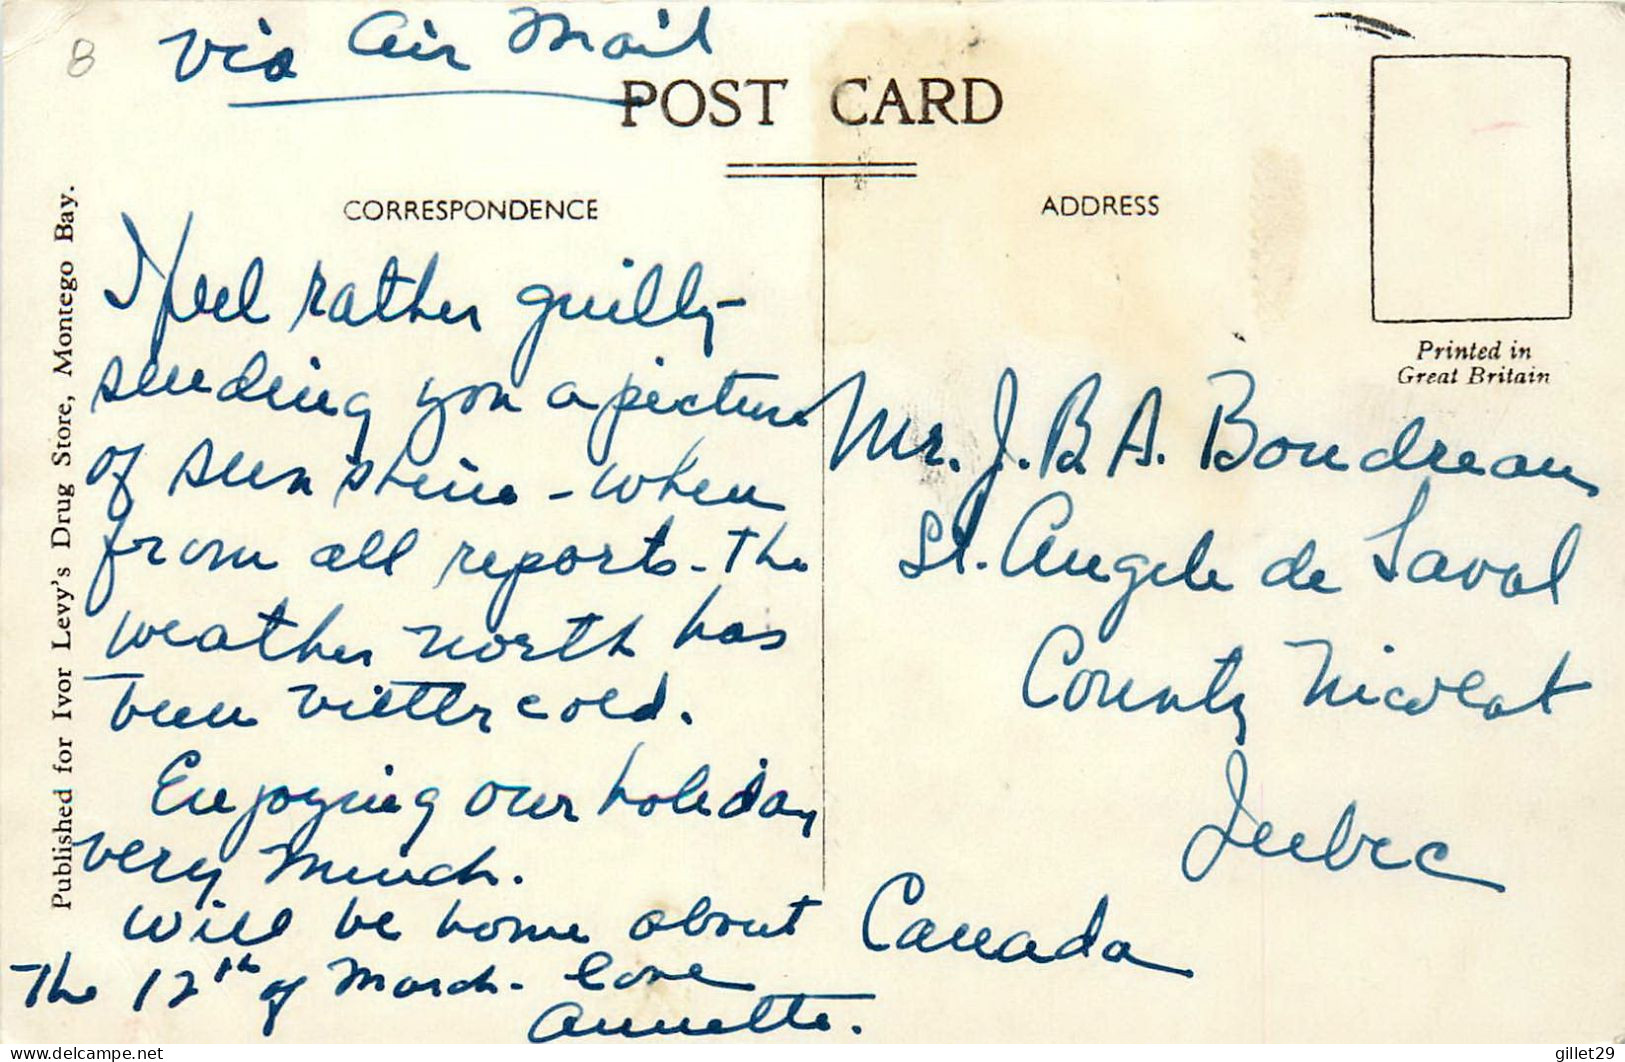 8
Via Air Mail
POST CARD
CORRESPONDENCE
ADDRESS
Printed in
Great Britain
Published for Ivor Levy's Drug Store, Montego Bay.
I feel rather guilty
sending you a picture
of sunshine - when
from all reports - the
weather north has
been bitter cold.
Enjoying our holiday
very much.
Will be home about
The 12th of March. Love
Annette.
Mr. J. B. A. Boudreau
St. Angele de Laval
County Nicolet
Quebec
Canada
gillet29